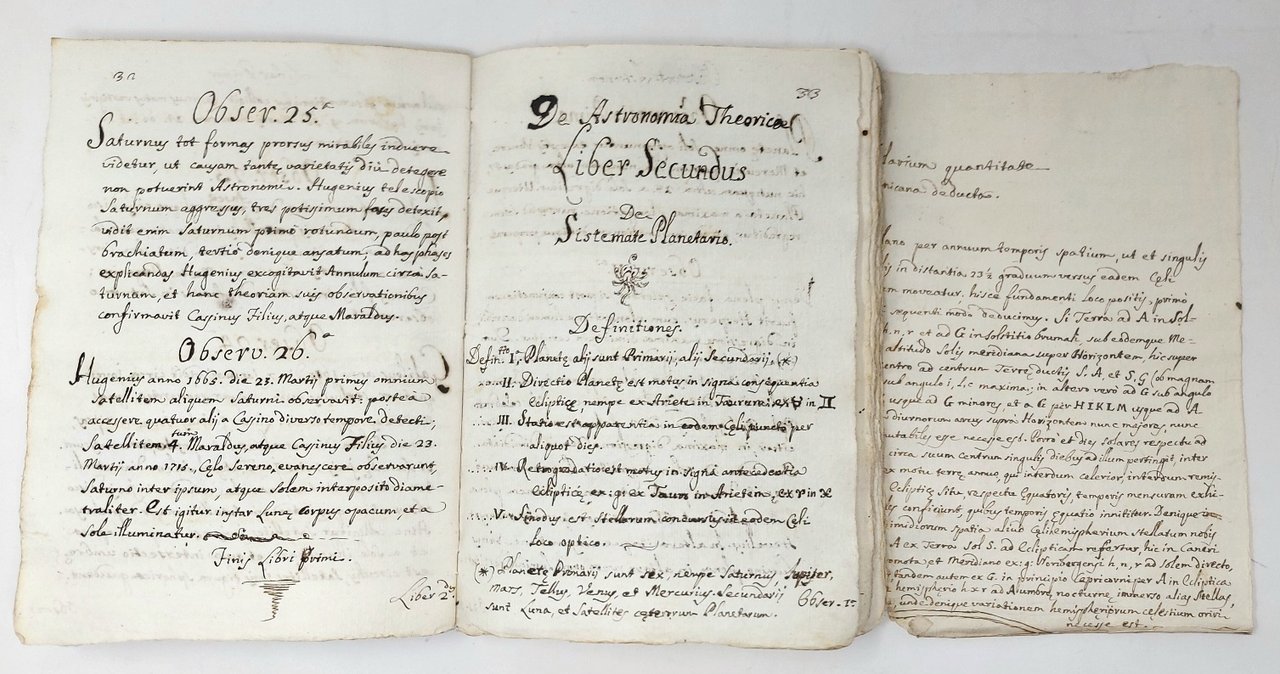 32
Obser. 25.ª
Saturnus tot formas prorsus mirabiles induere
videtur, ut causam tantę varietatis diù detegere
non potuerint Astronomi. Hugenius telescopio
Saturnum aggressus, tres potissimum fases detexit,
vidit enim Saturnum primò rotundum, paulo post
brachiatum, tertiò denique ansatum; ad has phases
explicandas Hugenius excogitavit Annulum circa Sa-
turnum, et hanc theoriam suis observationibus
confirmavit Cassinus Filius, atque Maraldus.
Observ. 26.ª
Hugenius anno 1665. die 25. Martij primus omnium
Satellitem aliquem Saturni observavit; postea
accesere quatuor alij a Casino diverso tempore detecti;
Satellitem 4.tum Maraldus, atque Casinus Filius die 23.
Martij anno 1715. Cęlo Sereno, evanescere observarunt,
Saturno inter ipsum, atque Solem interposito diame-
traliter. Est igitur instar Lunę corpus opacum et a
Sole illuminatur.
Finis Libri Primi.
Liber 2.ds
33
De Astronomia Theorica
Liber Secundus
De
Sistemate Planetario.
Definitiones.
Defin.tio I.ª Planetę alij sunt Primarij, alij Secundarij, (*)
II. Directio Planetę est motus in signa consequentia
eclipticę, nempe ex Ariete in Taurum, ex ♉ in ♊
III. Statio est apparentia in eodem Cęli puncto per
aliquot dies.
IV. Retrogradatio est motus in signa antecedentia
eclipticę ex: gr: ex Tauro in Arietem, ex ♈ in ♓
V. Sinodus est Stellarum concursus in eodem Cęli
loco optico.
(*) Planetę Primarij sunt sex, nempe Saturnus, Jupiter,
Mars, Tellus, Venus, et Mercurius. Secundarij
sunt Luna, et Satellites cęterorum Planetarum.
Obser. 1.ª
quantitate
deducta.
per annuum temporis spatium, ut et singulis
in distantia 23½ graduum versus eadem Cęli
moveatur. hisce fundamenti loco positis, primò
sequenti modo deducimus. Si Terra ad A in Sol-
h, n, r et ad G in solstitio brumali, sub eodemque Me-
altitudo Solis meridiana super Horizontem, hic super
ad centrum Terrę ductis S. A, et S. G (ob magnam
sub angulo maxima; in altero verò ad G sub angulo
usque ad G minores, et a G per H I K L M usque ad A
diurnorum arcus suprà Horizontem nunc majores, nunc
esse necesse est. Porrò et dies solares respectu ad
circa suum centrum singulis diebus ad illum pertingit, inter
ex motu terrę annuo, qui interdum celerior, interdum remis-
Eclipticę situ, respectu Equatoris temporis mensuram exhi-
conficiunt, quibus temporis equatio innititur. Denique
spatia aliud Cęli hemispherium stellatum nobis
A ex Terra Sol S. ad Eclipticam refertur, hic in Cancri
et Meridiano ex: g: h, n, r ad solem directo,
tandem autem ex G. in principio Capricorni per A in Ecliptica
hemispherio h x r ad A umbrę, nocturnę, immerso alias Stellas,
unde denique variationem hemispheriorum celestium oriri
necesse est.